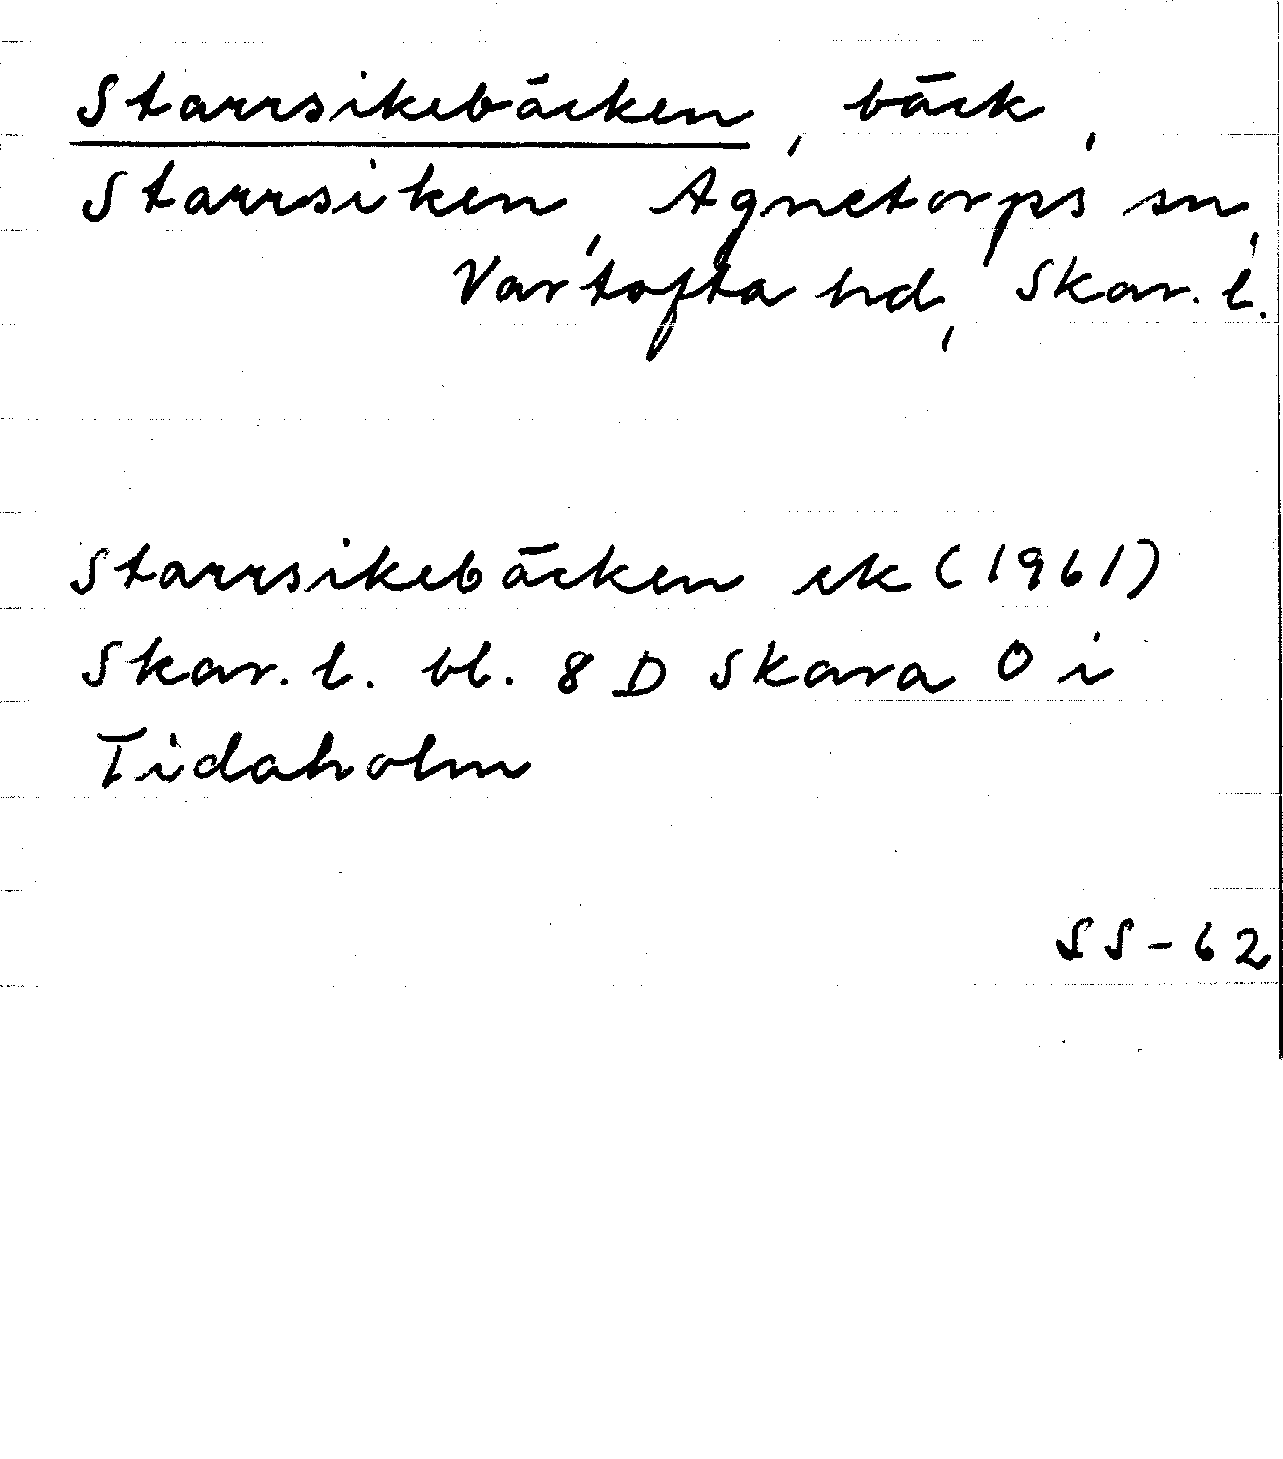 Starrsikebäcken, bäck,
Starrsiken, Agnetorps sn,
Vartofta hd, Skar. l.
Starrsikebäcken ek (1961)
Skar. l. bl. 8 D Skara O i
Tidaholm
SS-62